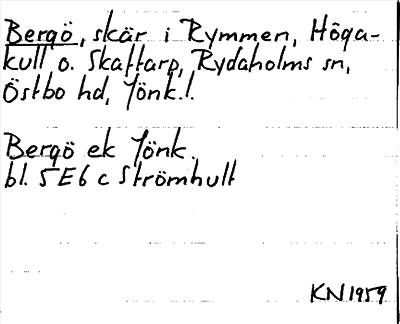 Bergö, skär i Rymmen, Höga-
kull o. Skattarp, Rydaholms sn,
Östbo hd, Jönk.l.
Bergö ek Jönk.
bl. 5E6c Strömhult
KN 1959